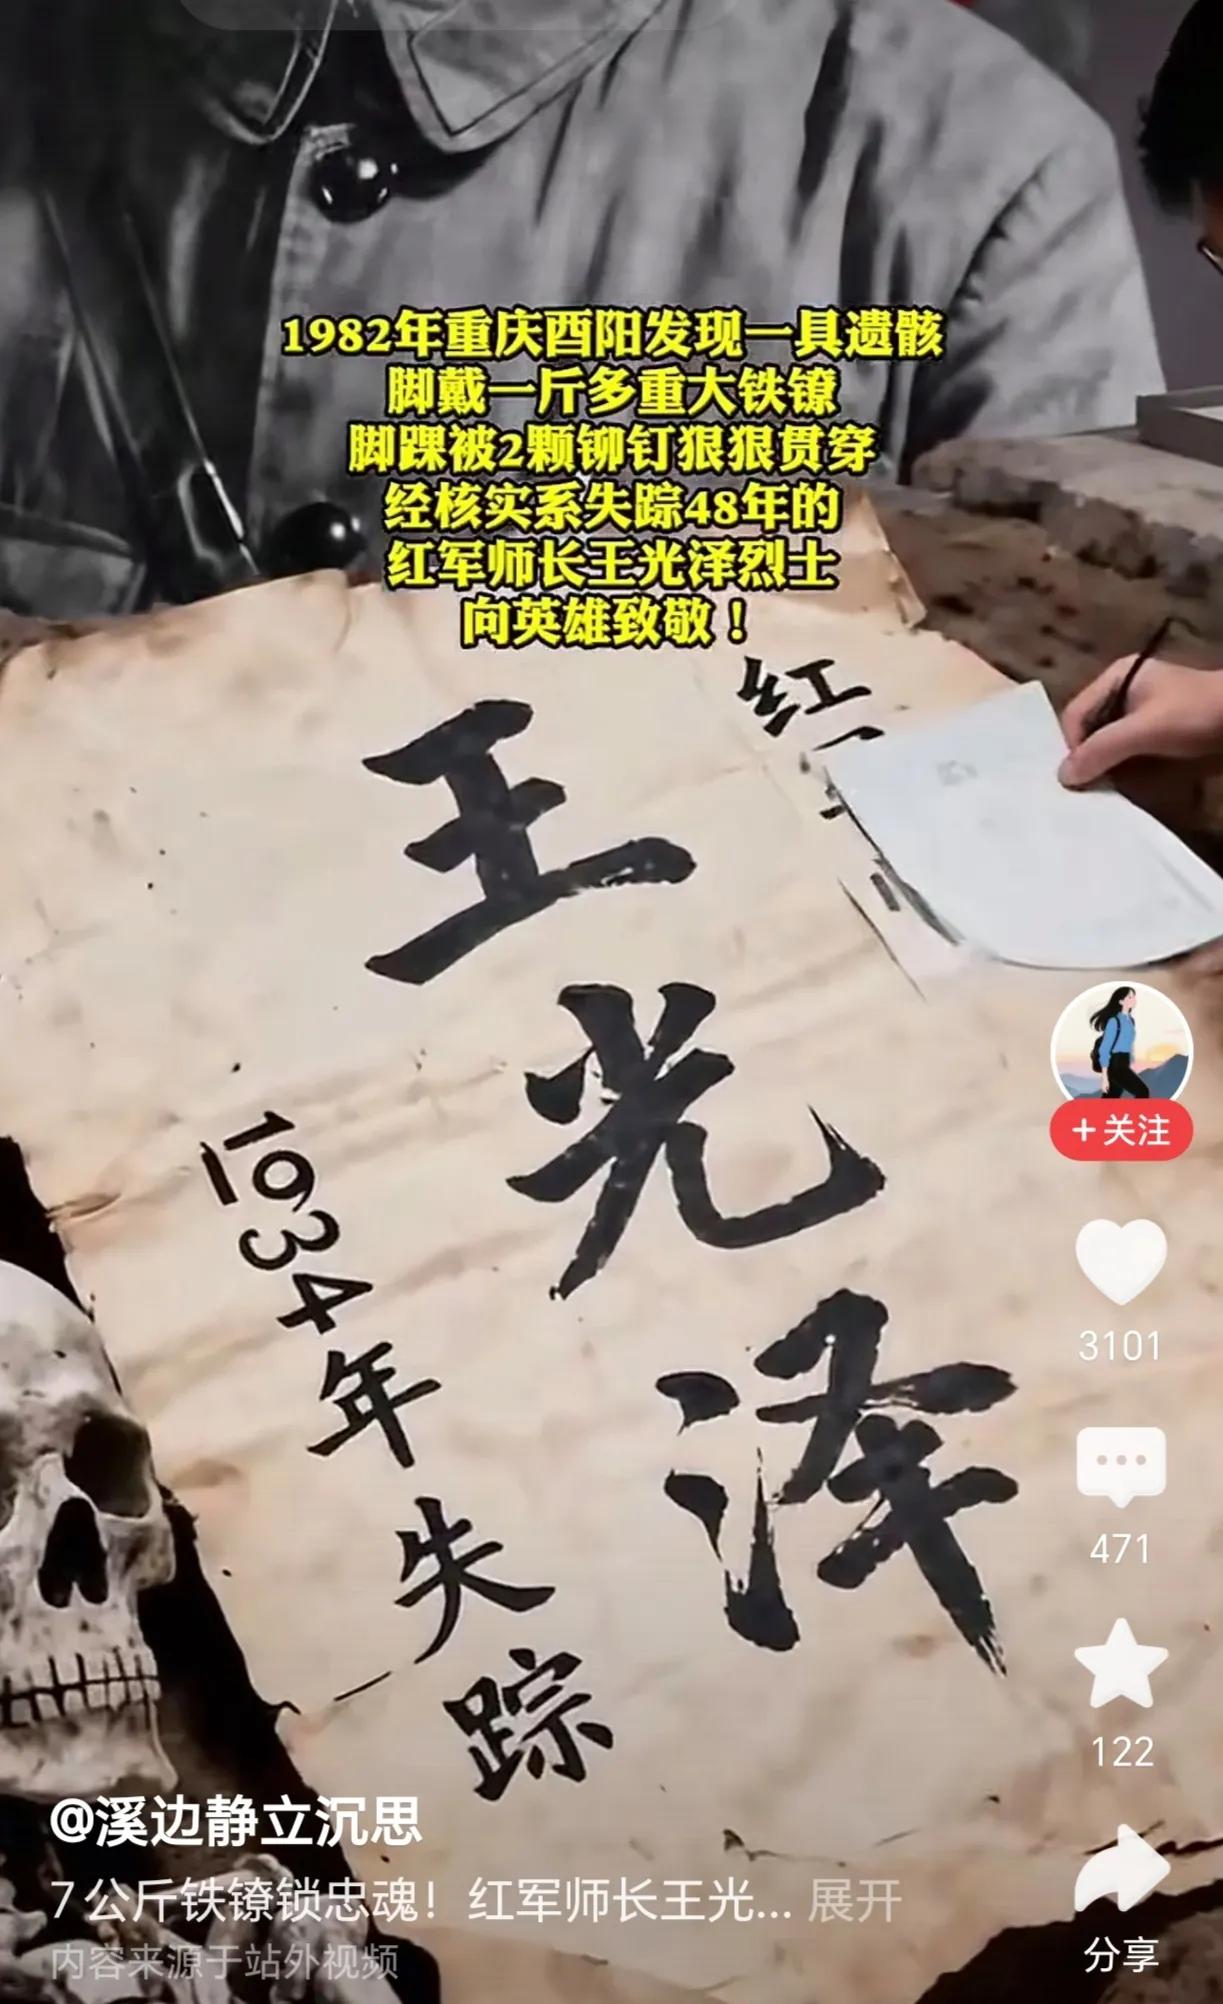 1982年重庆酉阳发现一具遗骸
脚戴一斤多重大铁镣
脚踝被2颗铆钉狠狠贯穿
经核实系失踪48年的
红军师长王光泽烈士
向英雄致敬！
红
王光泽
1934年失踪
+关注
3101
471
122
@溪边静立沉思
7公斤铁镣锁忠魂！红军师长王光... 展开
内容来源于站外视频
分享